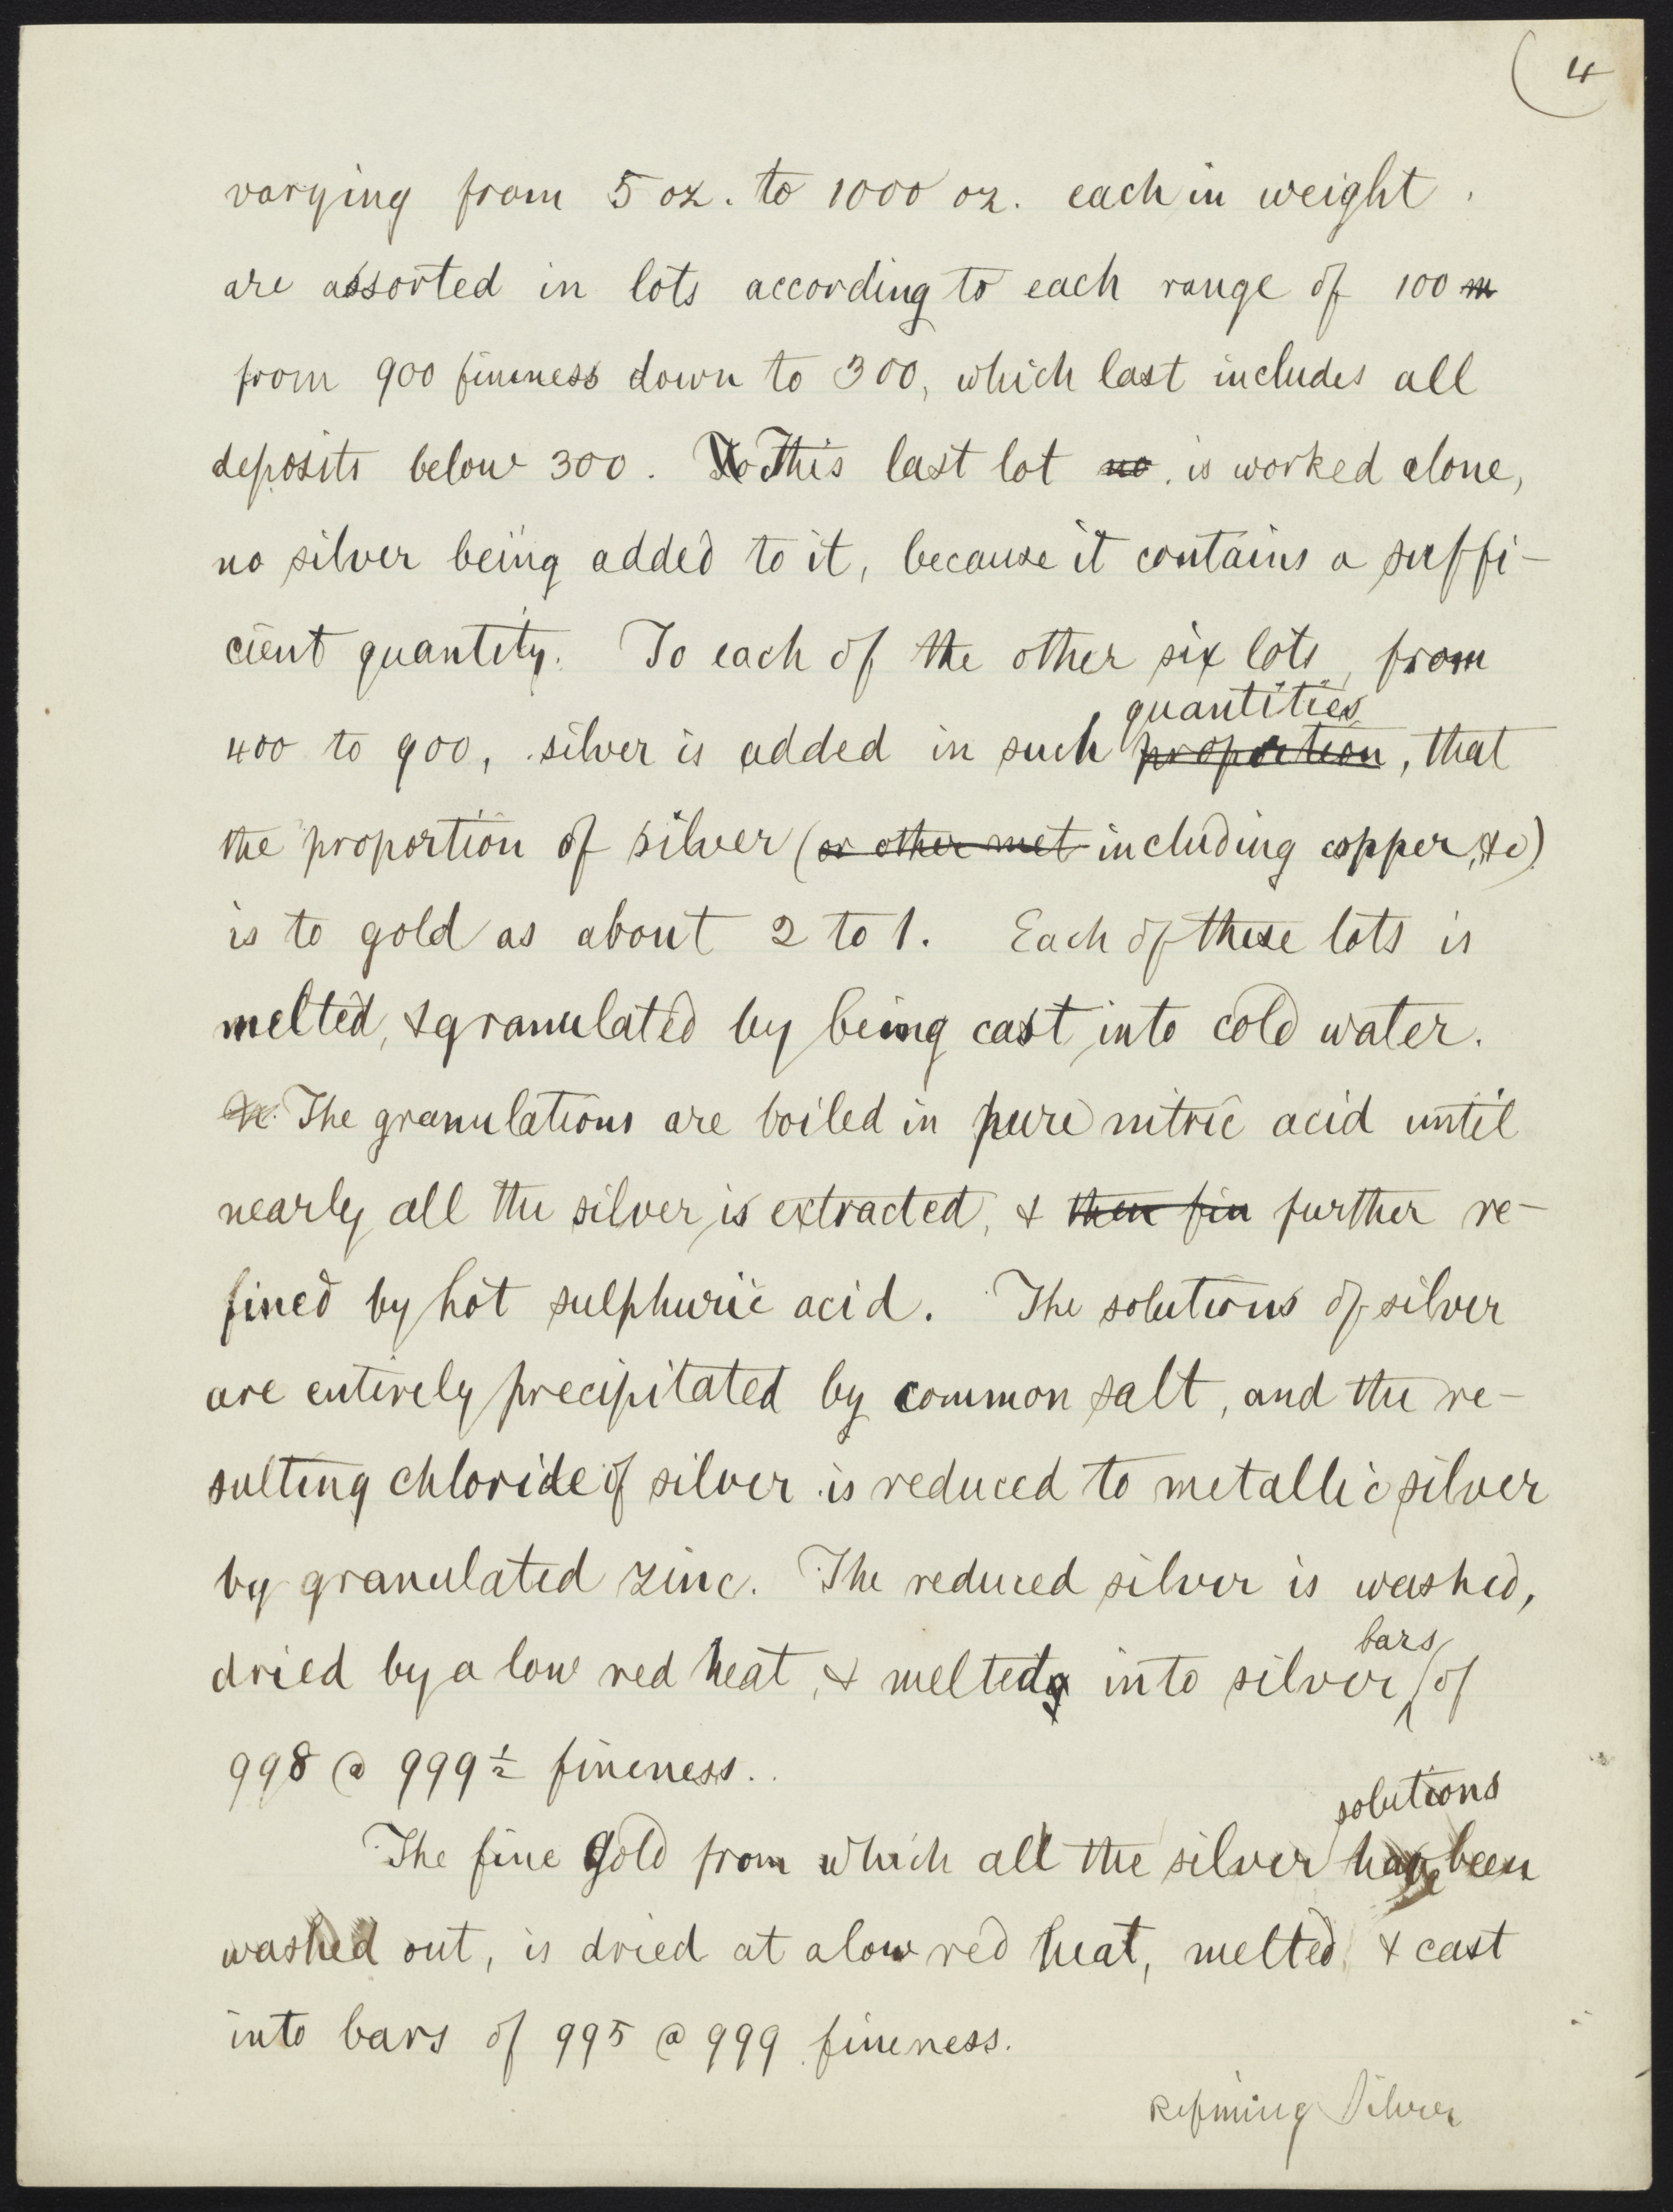 4
varying from 5 oz. to 1000 oz. each in weight.
are assorted in lots according to each range of 100 m
from 900 fineness down to 300, which last includes all
deposits below 300. To This last lot no. is worked alone,
no silver being added to it, because it contains a suffi-
cient quantity. To each of the other six lots, from
quantities
400 to 900, silver is added in such proportion, that
the proportion of silver (or other met including copper, &c)
is to gold as about 2 to 1. Each of these lots is
melted, & granulated by being cast into cold water.
The granulations are boiled in pure nitric acid until
nearly all the silver is extracted, & then fin further re-
fined by hot sulphuric acid. The solutions of silver
are entirely precipitated by common salt, and the re-
sulting chloride of silver is reduced to metallic silver
by granulated zinc. The reduced silver is washed,
bars
dried by a low red heat, & melted into silver of
998 @ 999½ fineness.
solutions
The fine gold from which all the silver have been
washed out, is dried at a low red heat, melted & cast
into bars of 995 @ 999 fineness.
Refining Silver